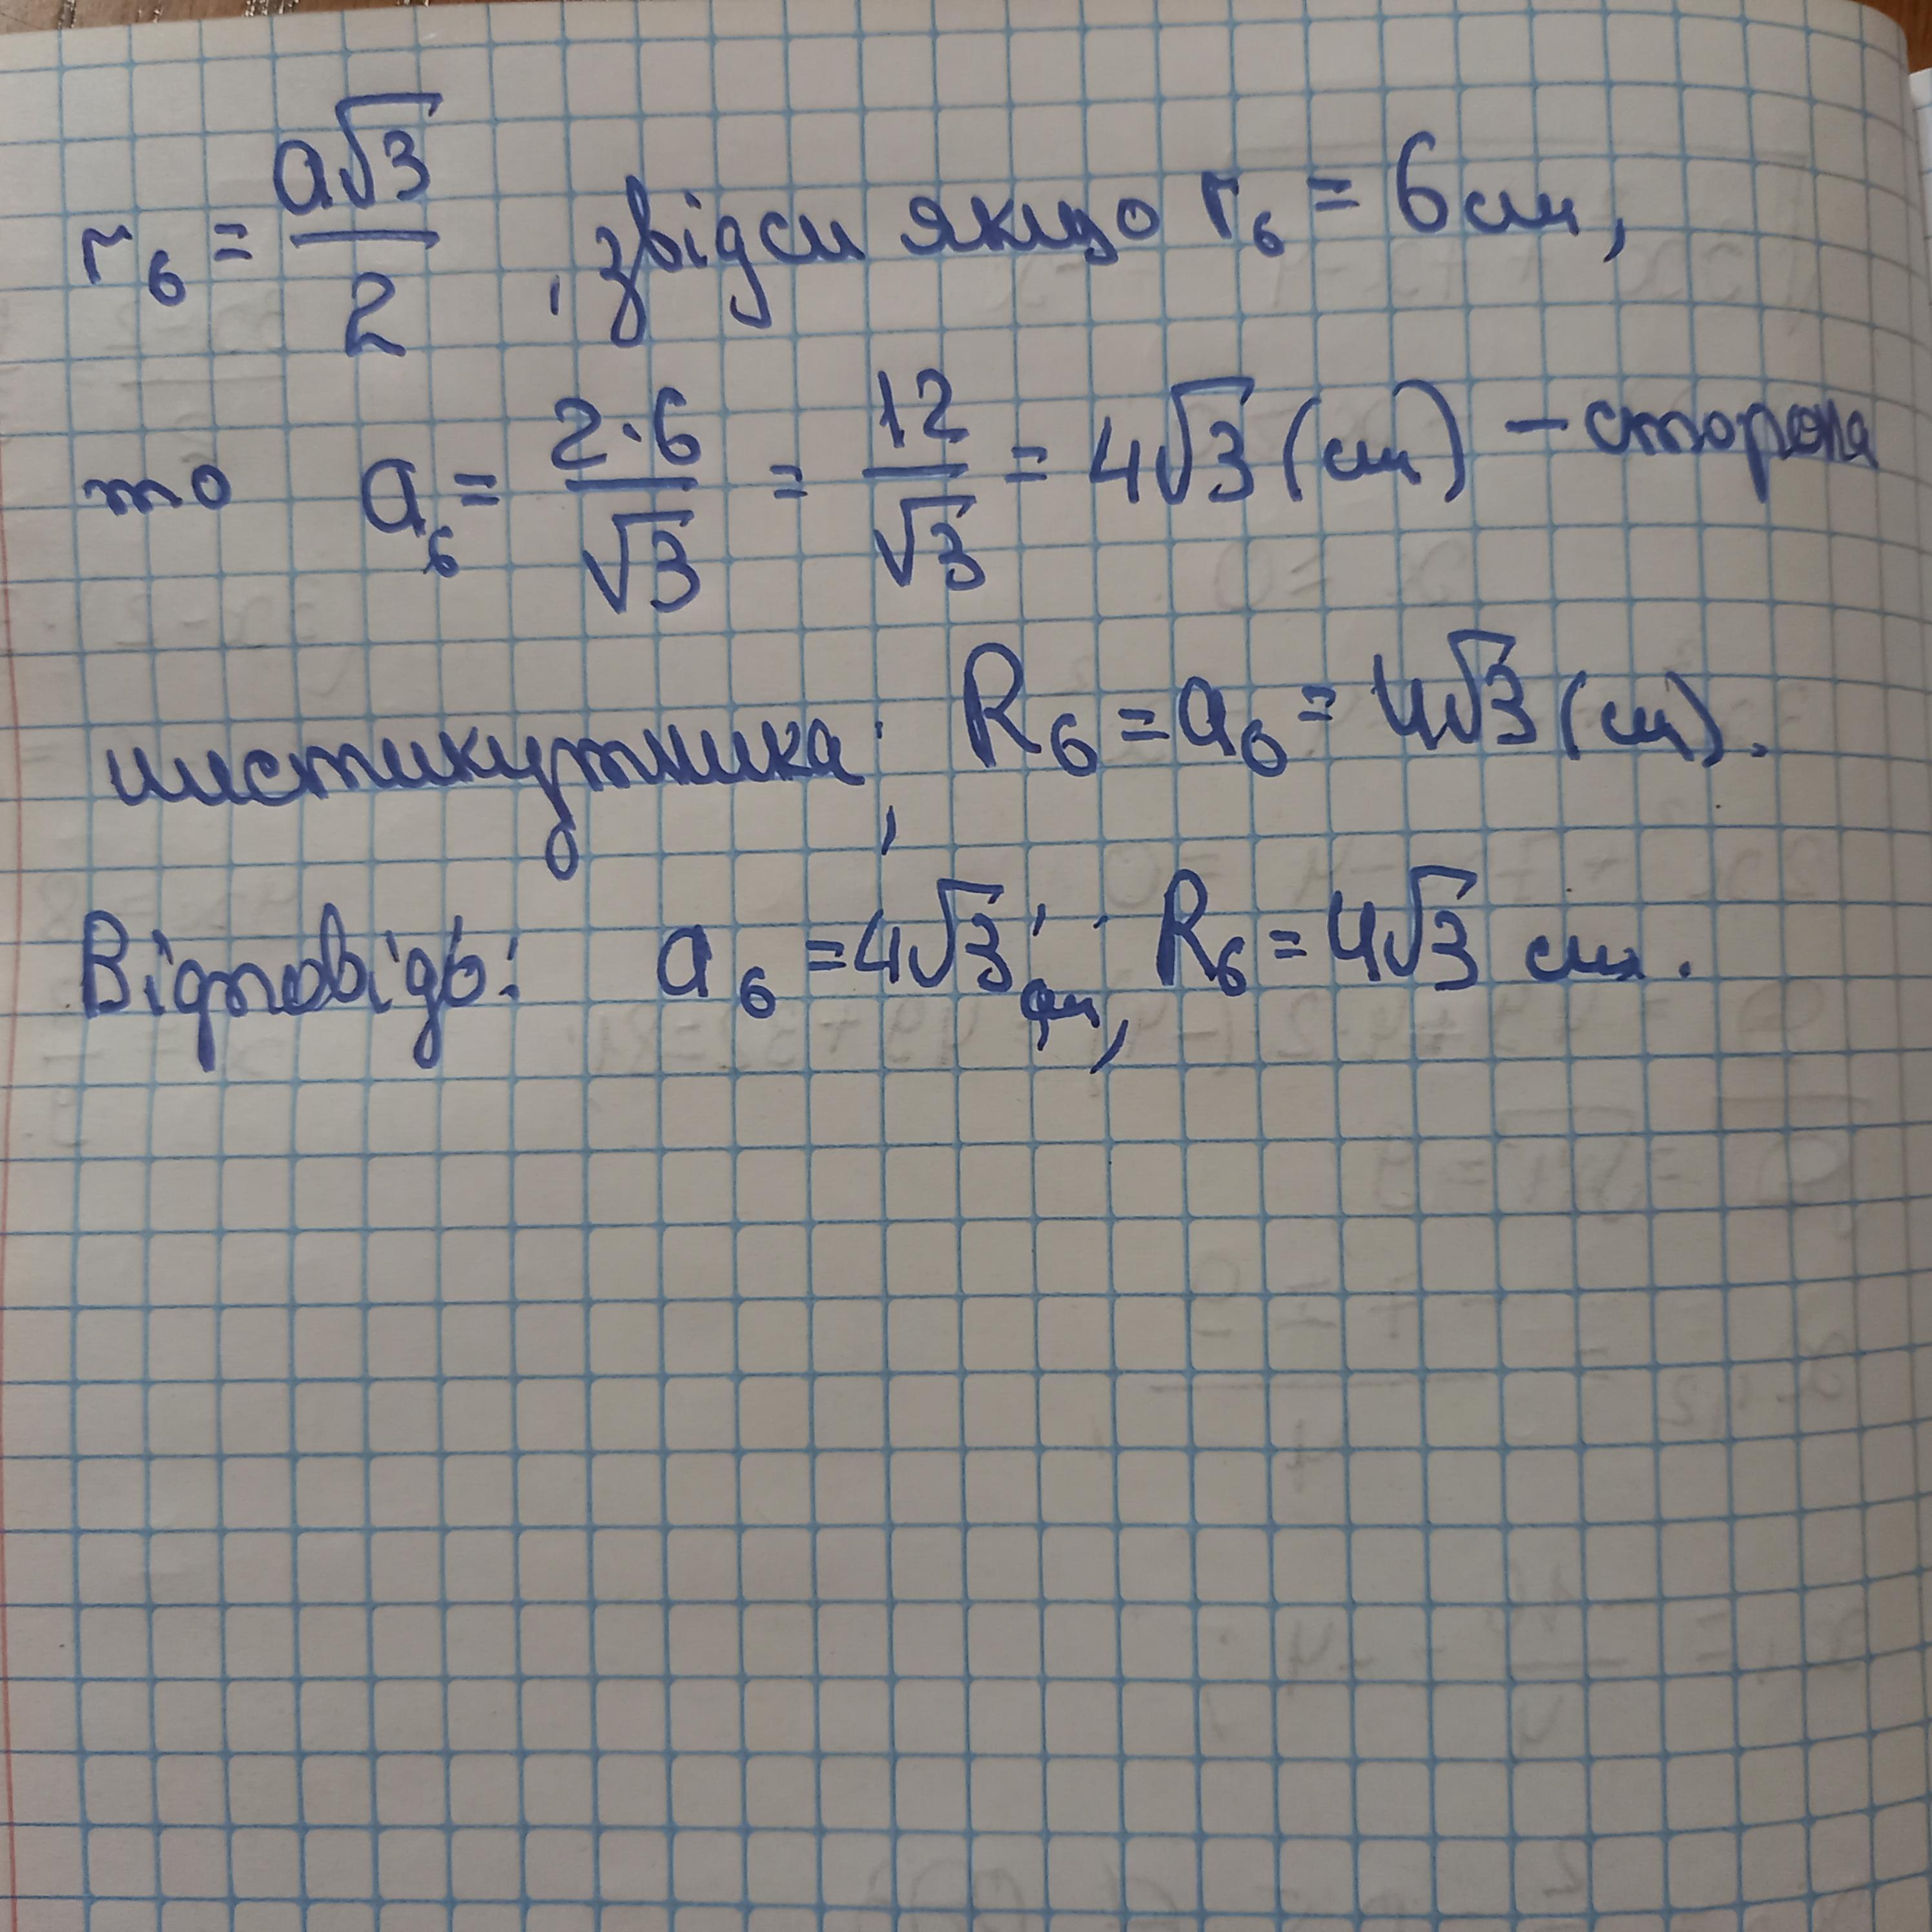 r₆ = a√3/2, звідси якщо r₆ = 6 см,
то a₆ = 2·6/√3 = 12/√3 = 4√3 (см) – сторона
шестикутника; R₆ = a₆ = 4√3 (см).
Відповідь: a₆ = 4√3 см; R₆ = 4√3 см.